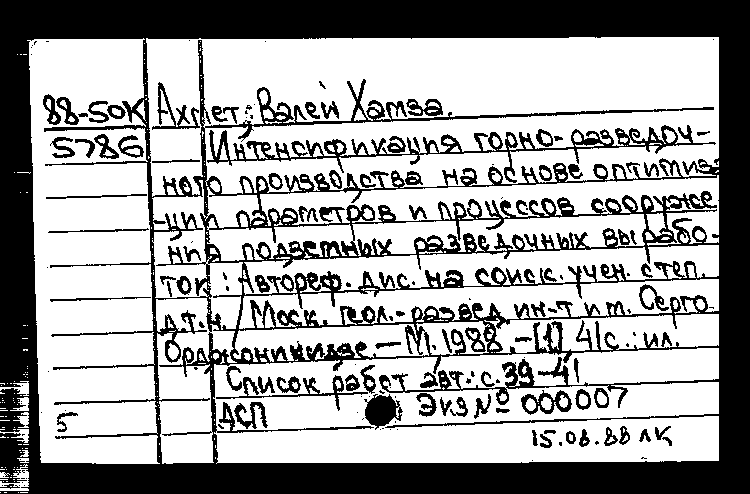 88-50К Ахмет, Валей Хамза.
5786 Интенсификация горно-разведоч-
ного производства на основе оптимиза
-ции параметров и процессов сооруже
ния подземных разведочных вырабо-
ток : Автореф. дис. на соиск. учен. степ.
д.т.н. / Моск. геол.-развед. ин-т им. Серго
Орджоникидзе. — М. 1988. -[1] 41с. : ил.
Список работ авт.: с. 39-41
5 ДСП Экз № 000007
15.08.88 ЛК